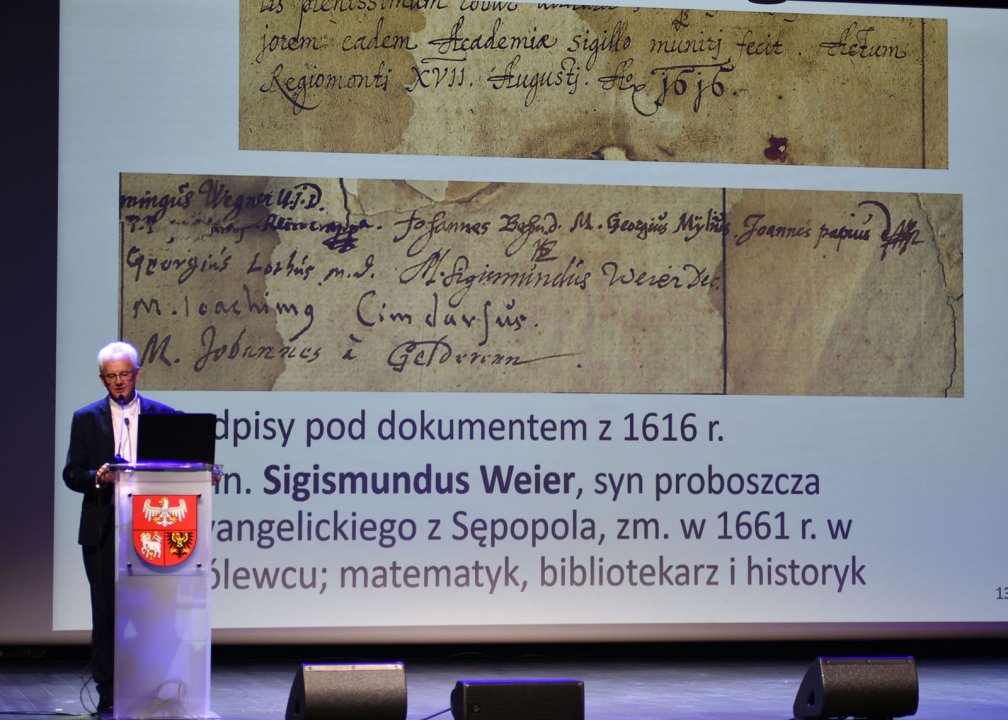 jorem eadem Academiæ sigillo munitj fecit. Actum
Regiomonti XVII. Augustj. Ao 1616.
Wegner U.J.D.
Johannes Behm D. M. Georgius Mylius. Joannes papius
Georgius Lothus m.d. M. Sigismundus Weier Dec.
M. Joachimg Cimdarsus.
M. Johannes à Gelderenn
dpisy pod dokumentem z 1616 r.
in. Sigismundus Weier, syn proboszcza
vangelickiego z Sępopola, zm. w 1661 r. w
ólewcu; matematyk, bibliotekarz i historyk
13